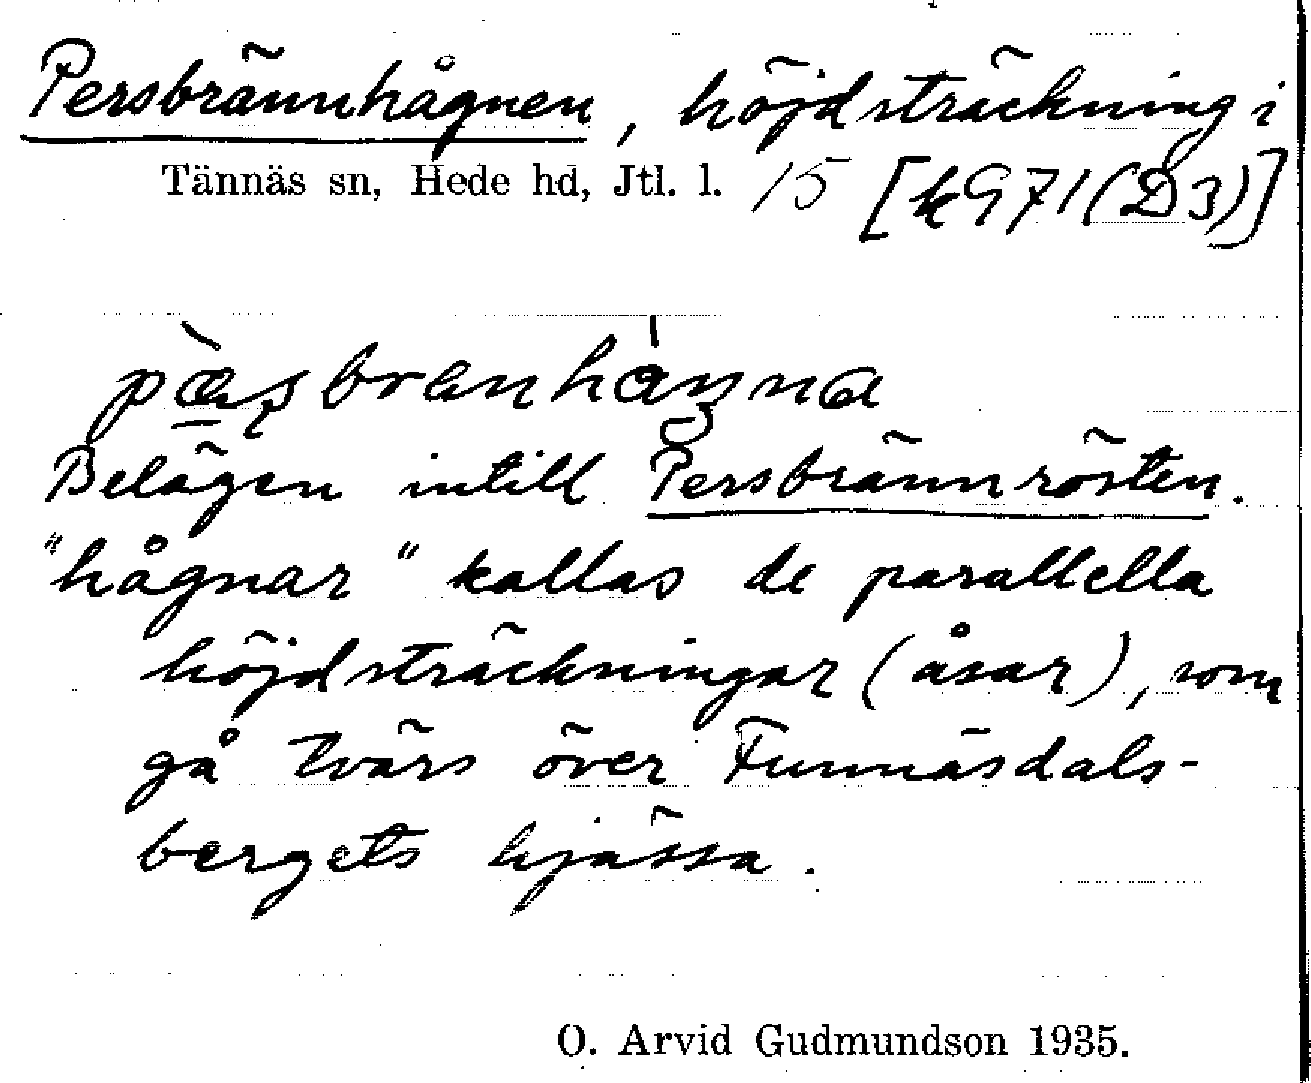 Persbrännhågnen, höjdsträckning i
Tännäs sn, Hede hd, Jtl. l. 15 [k971(D3)]
Belägen intill Persbrännrösten.
"hågnar" kallas de parallella
höjdsträckningar (åsar), som
gå tvärs över Funnäsdals-
bergets hjässa.
O. Arvid Gudmundson 1935.